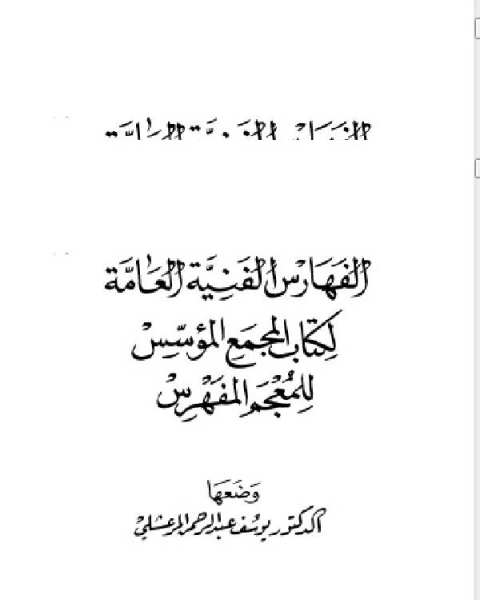 الفَهَارسُ الفَنِيَّة العَامَّة
لِكِتَابِ المَجمَعِ المُؤسِّسِ
لِلمُعْجَمِ المُفَهْرِسِ
وَضَعَهَا
الدكتور يوسف عبد الرحمن المرعشلي